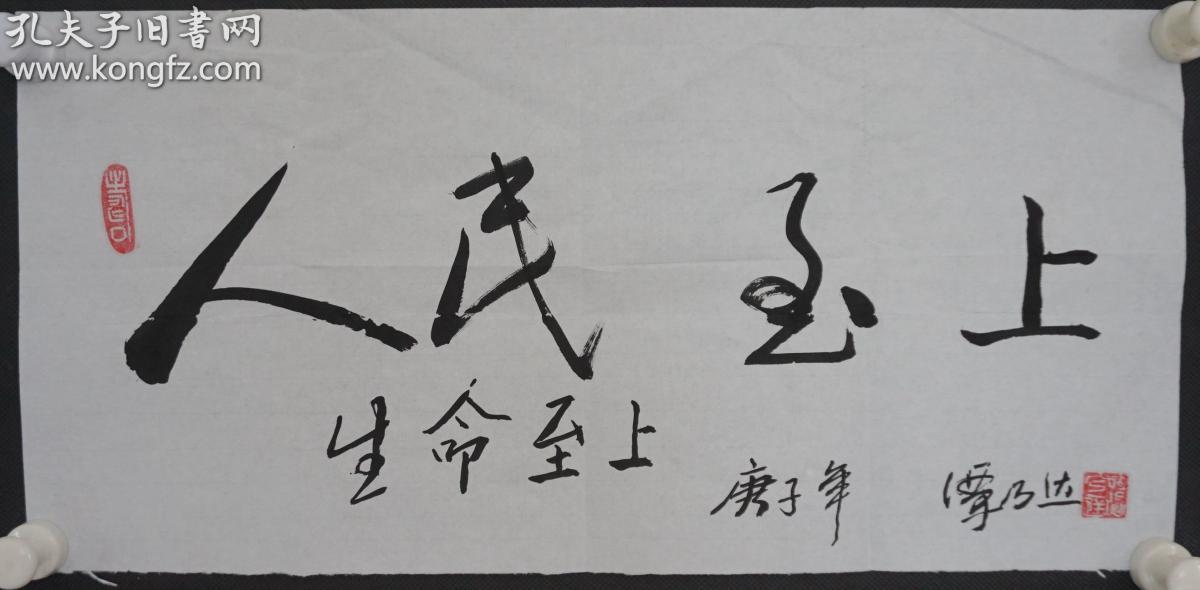 孔夫子旧书网
www.kongfz.com
人民至上
生命至上
庚子年 谭乃达